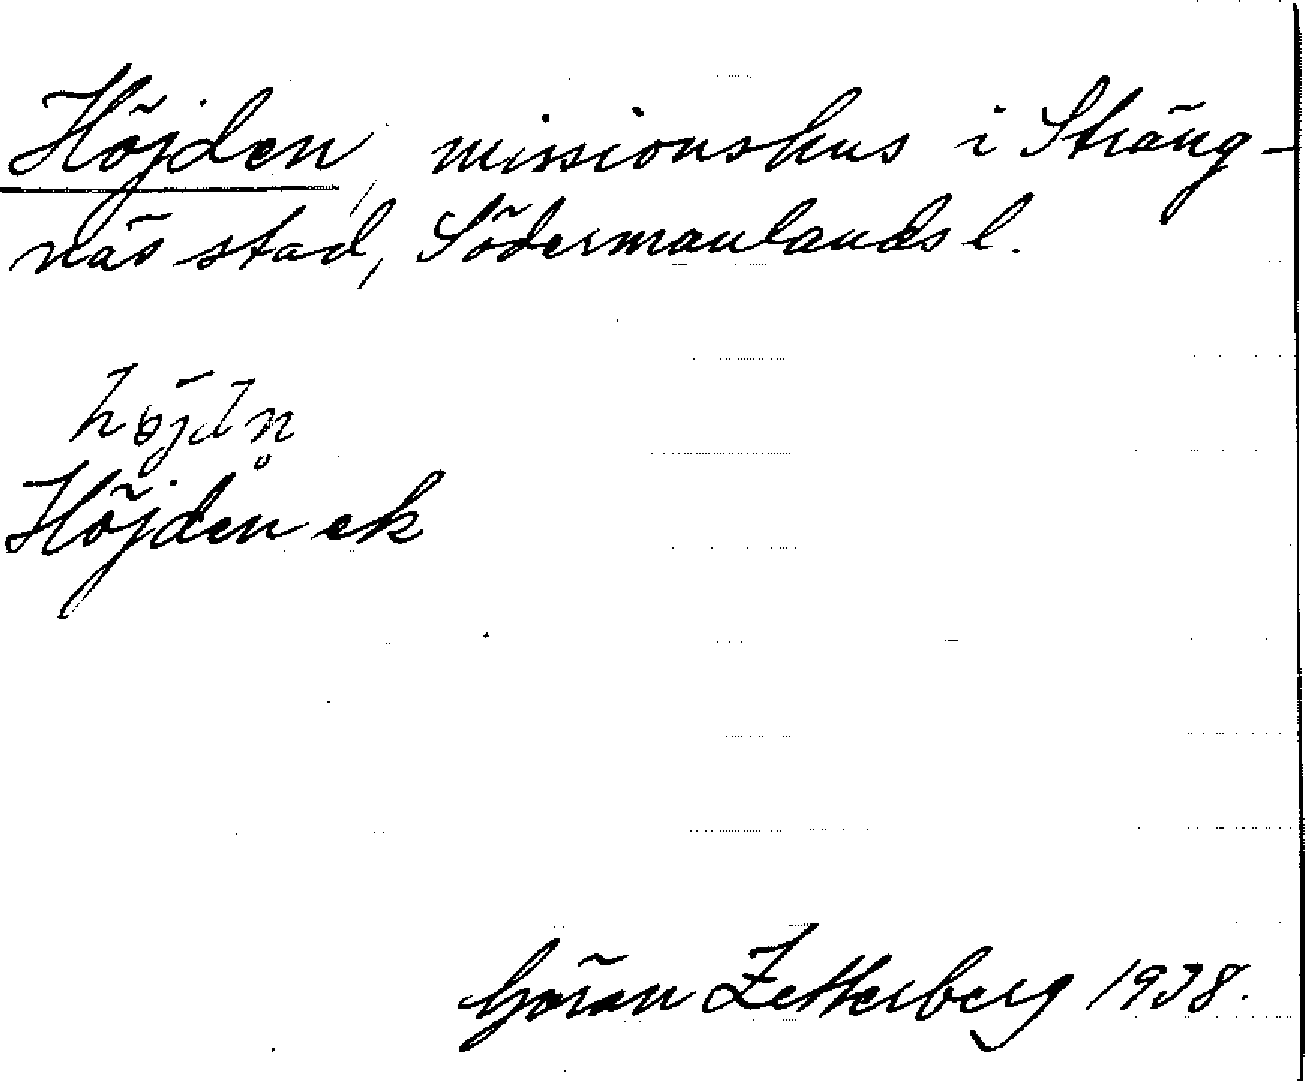 Höjden, missionshus i Sträng-
näs stad, Södermanlands l.
höjdn̥
Höjden ek
Göran Zetterberg 1938.